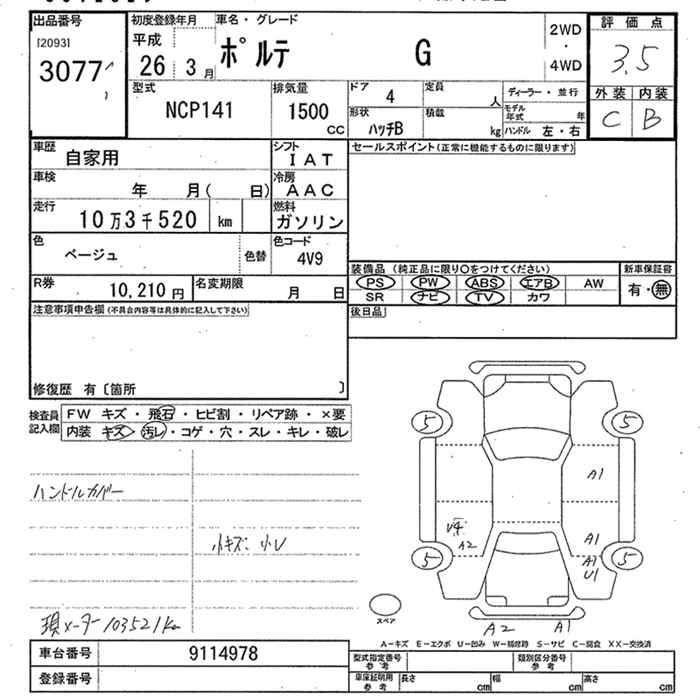 出品番号 初度登録年月 車名・グレード 2WD 評価点
[2093] 平成 ポルテ G ・ 3.5
3077 26 3月 4WD
型式 排気量 ドア 4 定員 人 ディーラー・並行 外装 内装
NCP141 1500 cc 形状 ハッチB 積載 kg モデル年式 年 C B
ハンドル 左・右
車歴 自家用 シフト IAT セールスポイント(正常に機能するものに限ります)
車検 年 月( 日) 冷房 AAC
走行 10万3千520 km 燃料 ガソリン
色 ベージュ 色替 色コード 4V9
装備品 (純正品に限り○をつけてください) 新車保証書
PS PW ABS エアB AW 有・無
R券 10,210円 名変期限 月 日 SR ナビ TV カワ
注意事項申告欄(不具合内容等は具体的に記入して下さい) 後日品
修復歴 有 〔箇所 〕
検査員 FW キズ・飛石・ヒビ割・リペア跡・×要
記入欄 内装 キズ・汚レ・コゲ・穴・スレ・キレ・破レ
5 5
ハンドルカバー A1
小キズ、小レ A2 A1
5 A1 5
U1
スペア
現メーター103521km A2 A1
A-キズ E-エクボ U-凹み W-補修跡 S-サビ C-腐食 XX-交換済
車台番号 9114978 型式指定番号 参考 類別区分番号 参考
登録番号 車庫証明用 参考 長さ cm 幅 cm 高さ cm